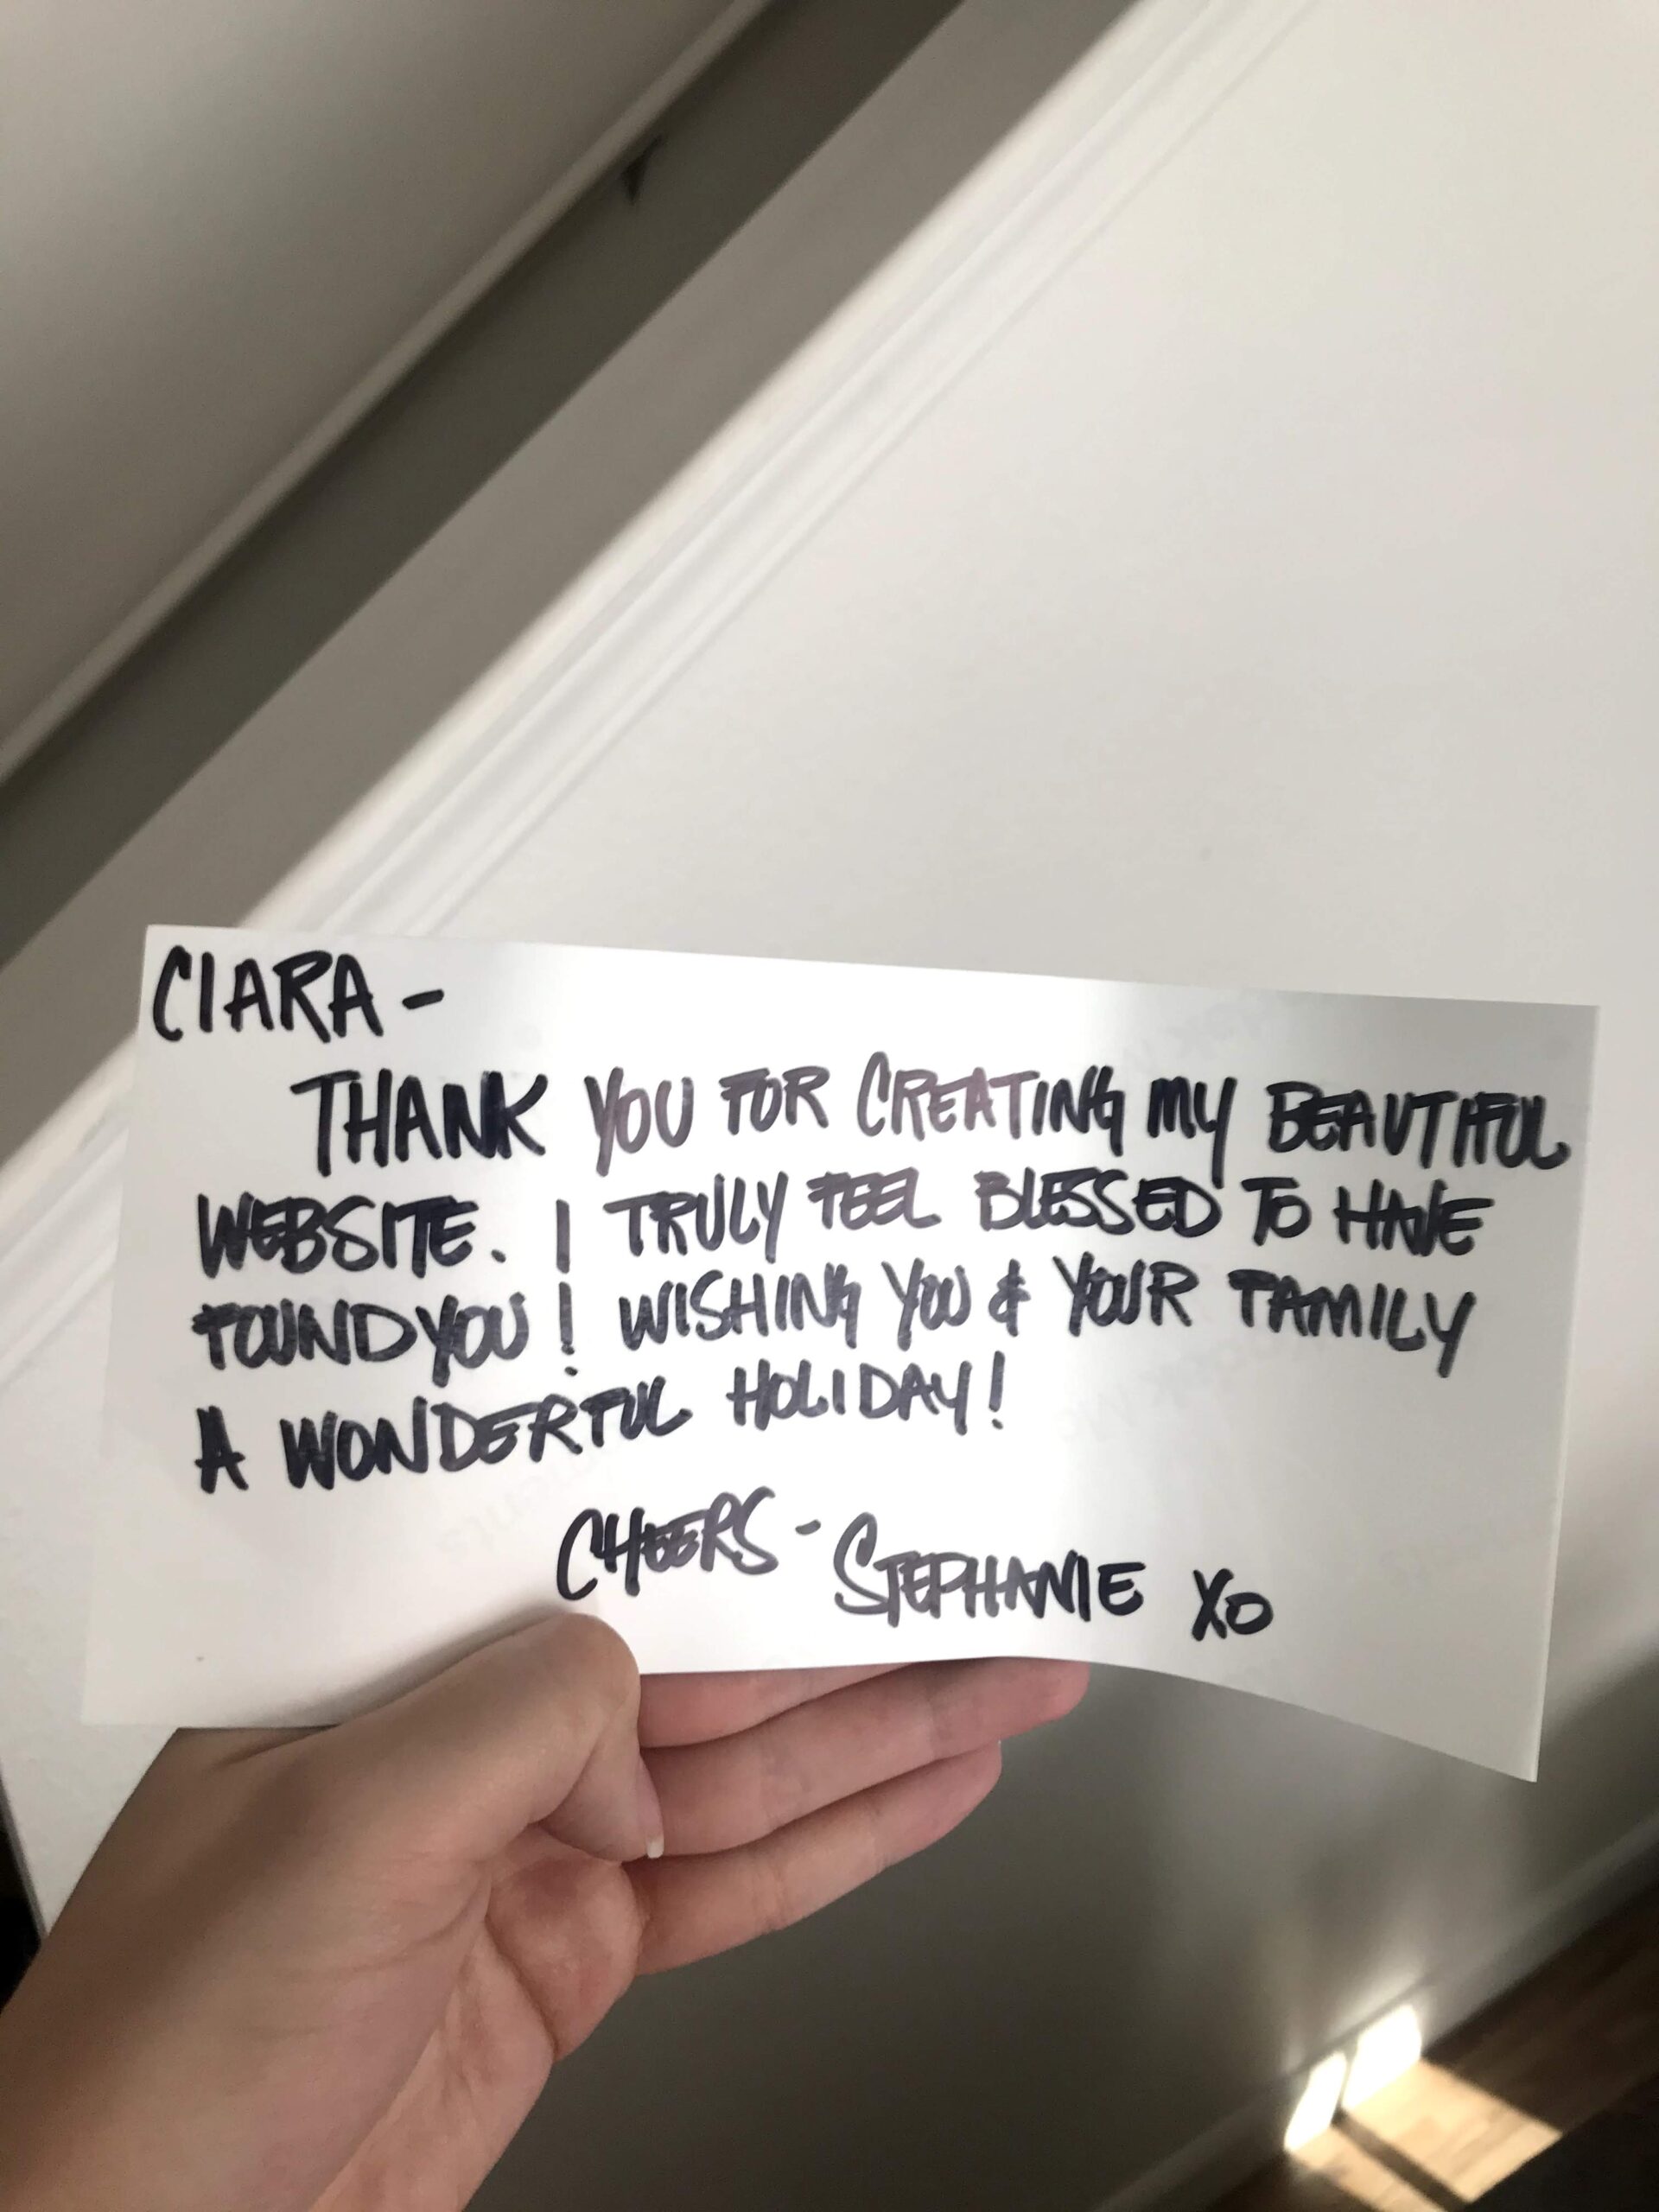 CIARA -
THANK YOU FOR CREATING MY BEAUTIFUL
WEBSITE. I TRULY FEEL BLESSED TO HAVE
FOUND YOU! WISHING YOU & YOUR FAMILY
A WONDERFUL HOLIDAY!
CHEERS - STEPHANIE XO